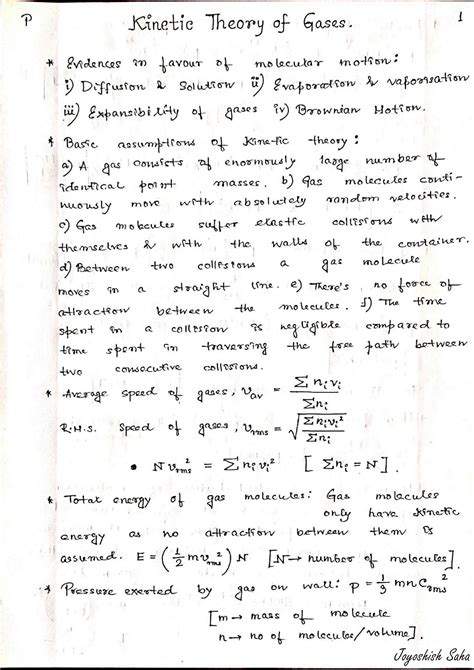 P
Kinetic Theory of Gases.
1
* Evidences in favour of molecular motion:
i) Diffusion & Solution ii) Evaporation & vaporisation
iii) Expansibility of gases iv) Brownian Motion.
* Basic assumptions of Kinetic theory:
a) A gas consists of enormously large number of
identical point masses. b) Gas molecules conti-
nuously move with absolutely random velocities.
c) Gas molecules suffer elastic collisions with
themselves & with the walls of the container.
d) Between two collisions a gas molecule
moves in a straight line. e) There's no force of
attraction between the molecules. f) The time
spent in a collision is negligible compared to
time spent in traversing the free path between
two consecutive collisions.
* Average speed of gases, v_av = Σn_i v_i / Σn_i
R.M.S. speed of gases, v_rms = √(Σn_i v_i² / Σn_i)
• N v_rms² = Σn_i v_i² [Σn_i = N].
* Total energy of gas molecules: Gas molecules
only have kinetic
energy as no attraction between them is
assumed. E = (1/2 m v_rms²) N [N → number of molecules]
* Pressure exerted by gas on wall: p = 1/3 mn C_rms²
[m → mass of molecule
n → no of molecules/volume].
Joyoshish Saha